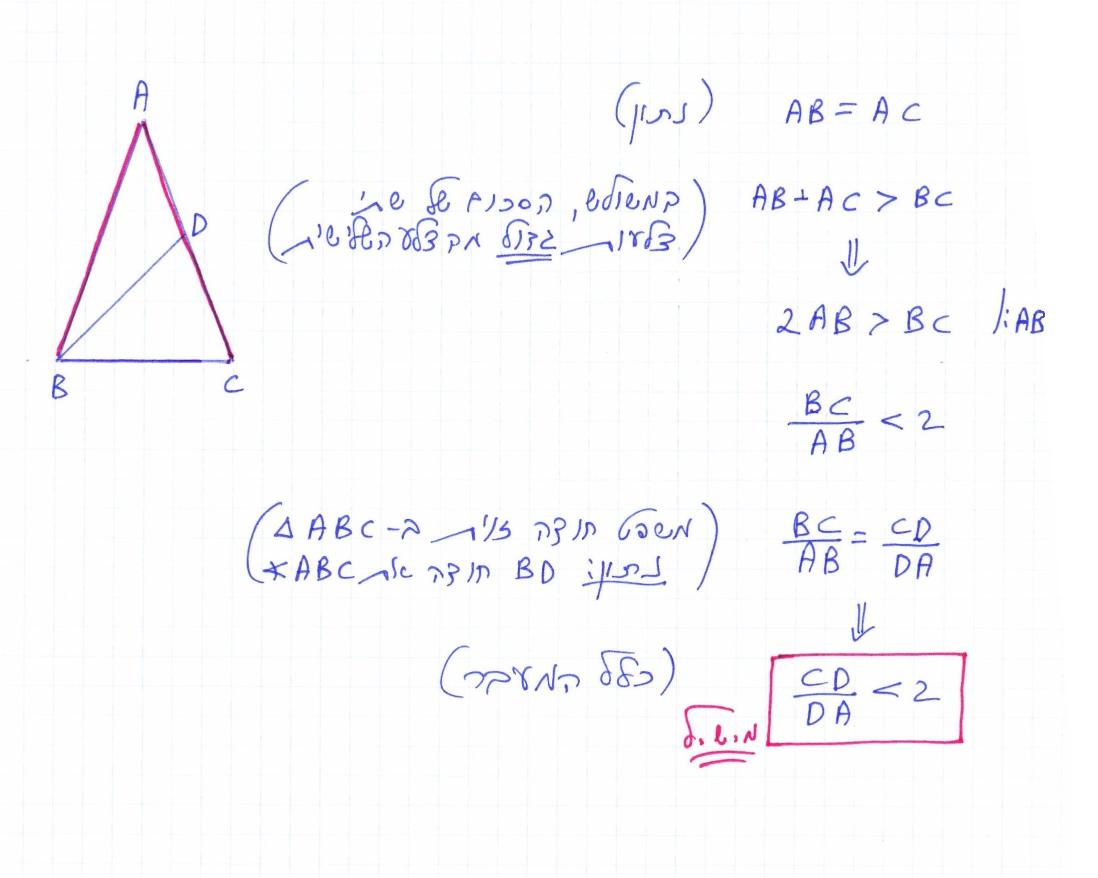 A
D
B
C
AB = AC (נתון)
AB + AC > BC (במשולש, הסכום של שתי
צלעות גדול מהצלע השלישית)
⇓
2AB > BC /:AB
BC/AB < 2
BC/AB = CD/DA (משפט חוצה זוית ב-ΔABC
נתון: BD חוצה את ∢ABC)
⇓
CD/DA < 2 (כלל המעבר)
מ.ש.ל